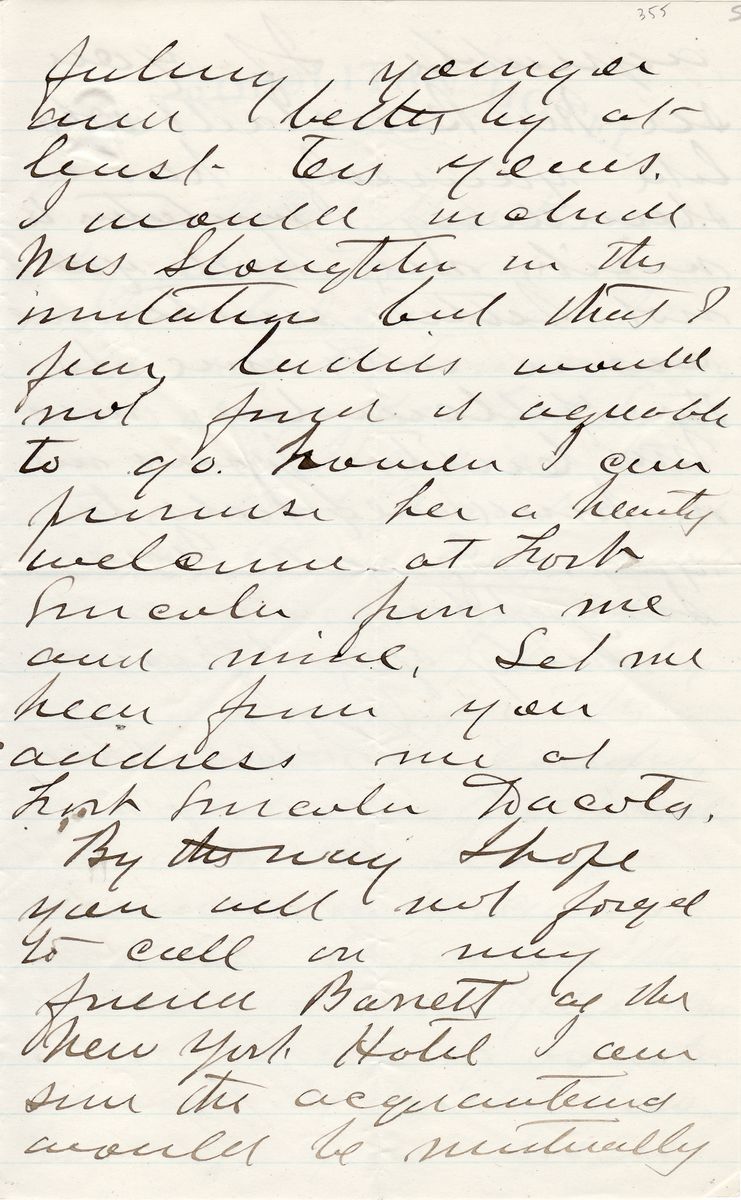 355
feeling younger
and better by at
least ten years.
I would include
Mrs Slaughter in the
invitation but that I
fear ladies would
not find it agreeable
to go. However I can
promise her a hearty
welcome at Fort
Lincoln from me
and mine. Let me
hear from you
address me at
Fort Lincoln Dacota.
By the way I hope
you will not forget
to call on my
friend Barrett at the
New York Hotel I am
sure the acquantance
would be mutually